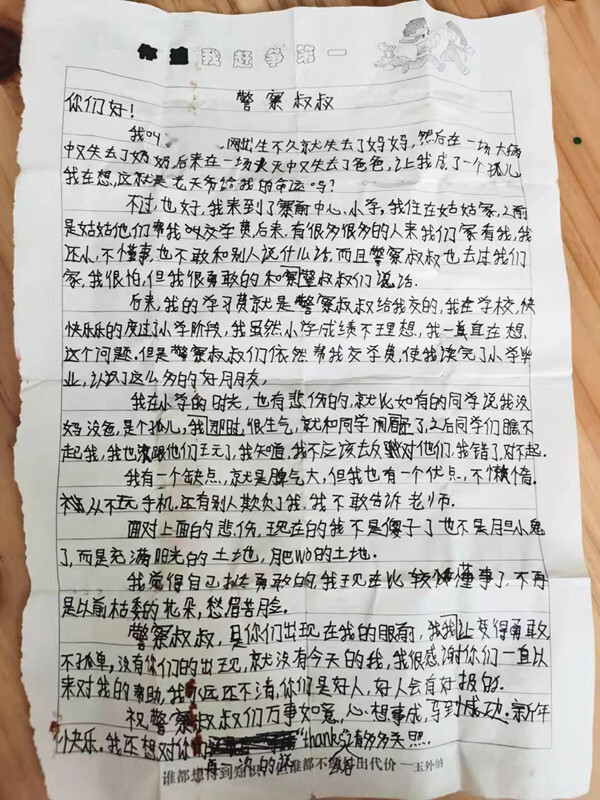 你追我赶争第一
警察叔叔
你们好!
我叫 ,刚出生不久就失去了妈妈,然后在一场大病
中又失去了奶奶,后来在一场火灾中又失去了爸爸,让我成了一个孤儿
我在想,这就是老天爷给我的命运吗?
不过,也好,我来到了寨前中心小学。我住在姑姑家,之前
是姑姑他们帮我叫交学费后来,有很多很多的人来我们家看我,我
还小,不懂事,也不敢和别人说什么话,而且警察叔叔也去过我们
家,我很怕,但我很勇敢的和警察叔叔们说话.
后来,我的学习费就是警察叔叔给我交的,我在学校,快
快乐乐的度过了小学阶段,我虽然小学成绩不理想,我一直在想,
这个问题.但是警察叔叔们依然帮我交学费,使我读完了小学毕
业,认识了这么多的好朋友,
我在小学的时光,也有悲伤的,就比如有的同学说我没
妈没爸,是个孤儿,我那时,很生气,就和同学闹翻了,之后同学们瞧不
起我,我也没跟他们玩了,我知道,我不应该去反驳对他们,我错了,对不起.
我有一个缺点,就是脾气大,但我也有一个优点,不懒惰.
从不玩手机.还有别人欺负了我,我不敢告诉老师.
面对上面的悲伤,现在的我不是傻子了也不是胆小鬼
了,而是充满阳光的土地,肥wò的土地.
我觉得自己挺勇敢的,我现在比较懂事了,不再
是以前枯萎的花朵,愁眉苦脸。
警察叔叔,是你们出现在我的眼前,我让变得勇敢,
不孤单。没有你们的出现,就没有今天的我,我很感谢你们一直以
来对我的帮助,我永远还不清,你们是好人,好人会有好报的.
祝警察叔叔们万事如意,心想事成,马到成功.新年
快乐。我还想对你们 "thanks"请多多关照.
再一次的感谢
谁都想得到知识 谁都不 付出代价 —玉外纳